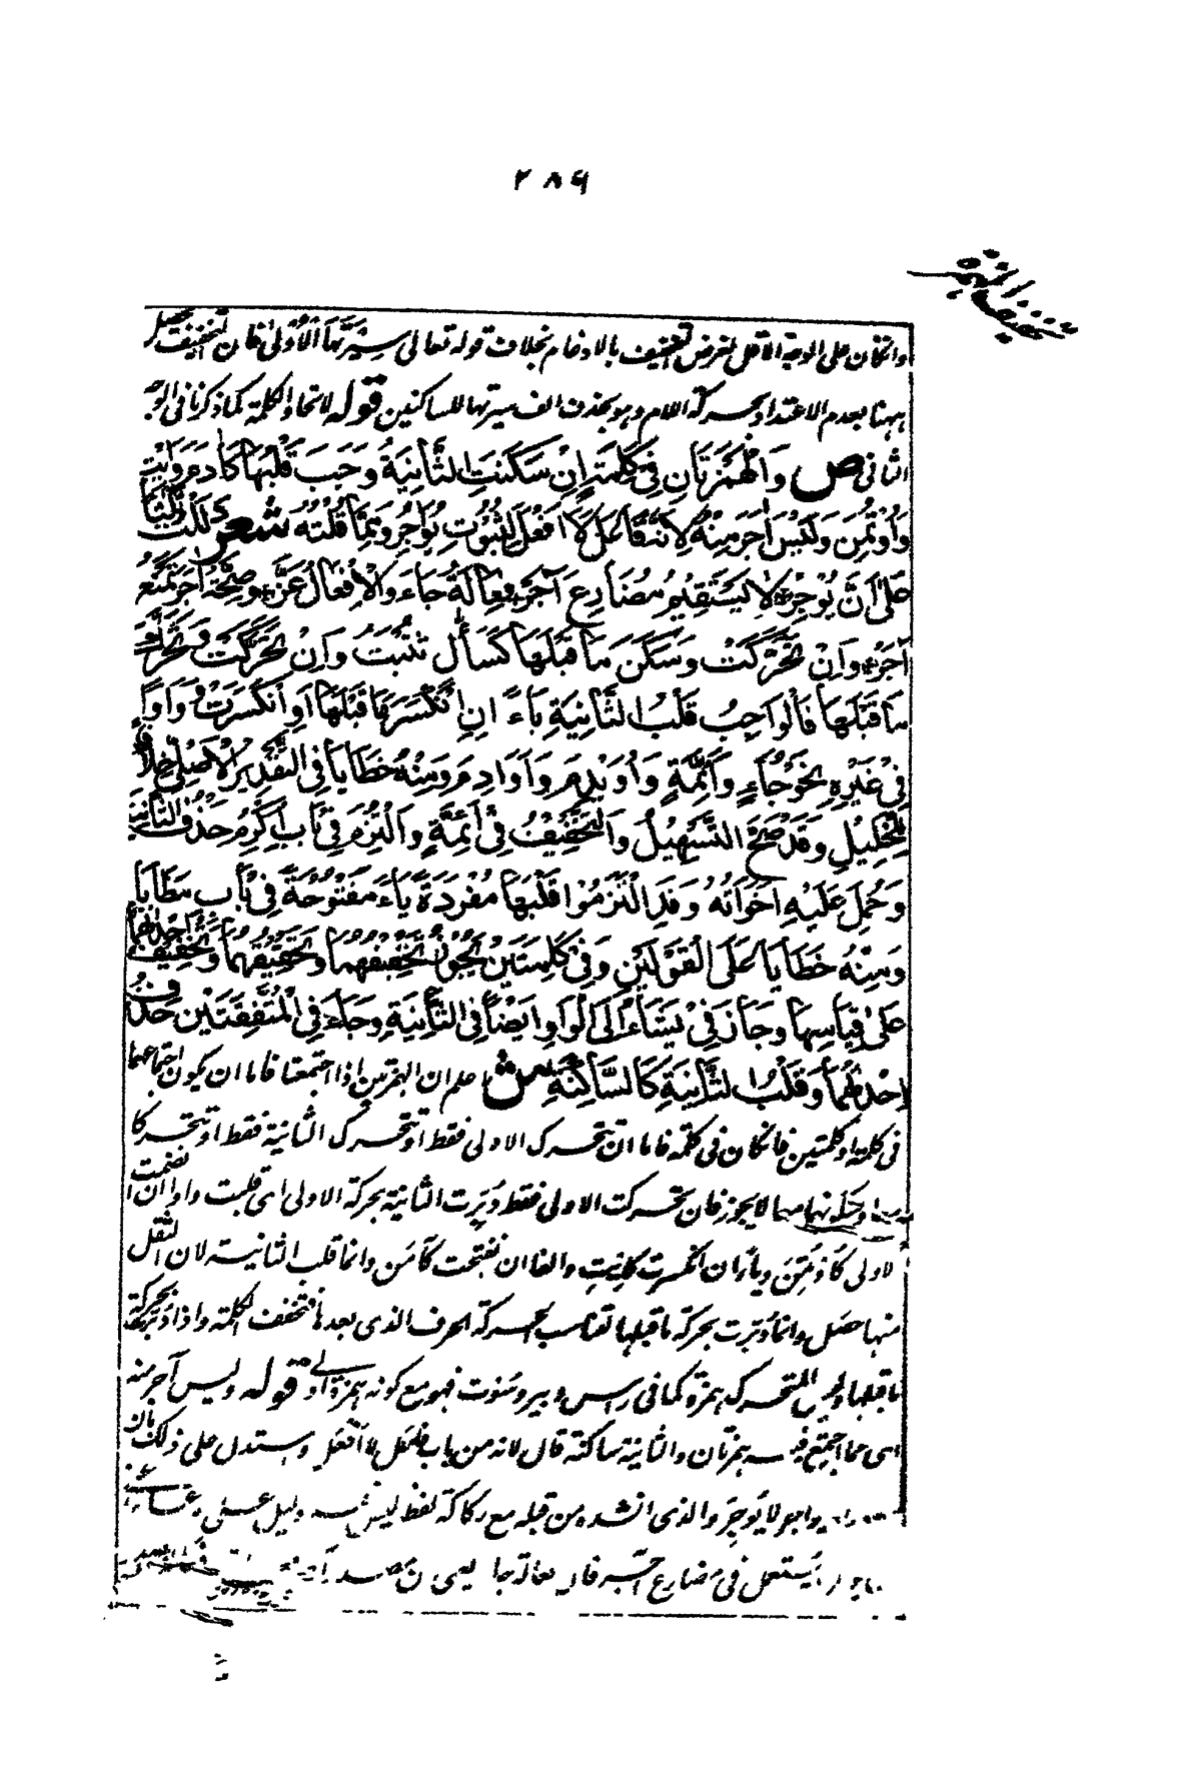 ٢٨٦
تخفيف الهمزة
وان كان على الوجه الاقل لغرض التخفيف بالادغام بخلاف قوله تعالى سِيْرَتَهَا الْأُوْلىٰ فان التخفيف حصل
ههنا بعدم الاعتداد بحركة اللام وهو بحذف الف سيرتها للساكنين قوله لاتحاد الكلمة كما ذكرنا فى الوجه
الثانى ص وَالْهَمْزَتَانِ فِيْ كَلِمَةٍ اِنْ سَكَنَتِ الثَّانِيَةُ وَجَبَ قَلْبُهَا كَاٰدَمَ وَاِيْتِ
وَاُوْتُمِنَ وَلَيْسَ اٰجَرَ مِنْهُ لِاَنَّهُ فَاعَلَ لَا اَفْعَلَ لِثُبُوْتِ يُؤَاجِرُ وَمِمَّا قُلْتُهُ شعر دَلَلْتُ ثَلٰثًا
عَلىٰ اَنَّ يُوْجِرُ ÷ لَا يَسْتَقِيْمُ مُضَارِعَ اٰجَرَ ÷ فِعَالَةُ جَاءَ وَالْاِفْعَالُ عَزَّ ÷ وَصِحَّةُ اٰجَرَ تَمْنَعُ
اٰجَرَ ÷ وَاِنْ تَحَرَّكَتْ وَسَكَنَ مَا قَبْلَهَا كَسَأَّلٍ تَثْبُتُ وَاِنْ تَحَرَّكَتْ وَتَحَرَّكَ
مَا قَبْلَهَا قَالُوا وَجَبَ قَلْبُ الثَّانِيَةِ يَاءً اِنِ انْكَسَرَ مَا قَبْلَهَا اَوِ انْكَسَرَتْ وَوَاوًا
فِيْ غَيْرِهِ نَحْوُ جَاءٍ وَاَئِمَّةٍ وَاُوَيْدِمَ وَاَوَادِمَ وَمِنْهُ خَطَايَا فِي التَّقْدِيْرِ الْاَصْلِيِّ خِلَافًا
لِلْخَلِيْلِ وَقَدْ صَحَّ التَّسْهِيْلُ وَالتَّحْقِيْقُ فِيْ اَئِمَّةٍ وَالْتُزِمَ فِيْ بَابِ اُكْرِمُ حَذْفُ الثَّانِيَةِ
وَحُمِلَ عَلَيْهِ اَخَوَاتُهُ وَقَدِ الْتَزَمُوْا قَلْبَهَا مُفْرَدَةً يَاءً مَفْتُوْحَةً فِيْ بَابِ مَطَايَا
وَمِنْهُ خَطَايَا عَلَى الْقَوْلَيْنِ وَفِيْ كَلِمَتَيْنِ يَجُوْزُ تَحْقِيْقُهُمَا وَتَخْفِيْفُهُمَا وَتَخْفِيْفُ اِحْدٰهُمَا
عَلىٰ قِيَاسِهَا وَجَازَ فِيْ يَشَاءُ اِلىٰ الْوَاوُ اَيْضًا فِي الثَّانِيَةِ وَجَاءَ فِي الْمُتَّفِقَتَيْنِ حَذْفُ
اِحْدٰهُمَا وَقَلْبُ الثَّانِيَةِ كَالسَّاكِنَةِ ش اعلم ان الهمزتين اذا اجتمعتا فاما ان يكون اجتماعهما
فى كلمة او كلمتين فان كان فى كلمة فاما ان تتحرك الاولى فقط او تتحرك الثانية فقط او تتحركا
معا وسكونهما معا لا يجوز فان تحركت الاولى فقط دُبِّرت الثانية بحركة الاولى اى قلبت واوا ان انضمت
الاولى كَاُوْتُمِنَ وياءً ان انكسرت كاِيْتِ والفا ان انفتحت كآمَن وانما قلبت الثانية لان الثقل
منها حصل وانما دُبّرت بحركة ما قبلها لتناسب الحركة الحرف الذى بعدها فتخفف الكلمة واذا دُبّرت بحركة
ما قبلها وليس المتحركة همزة كما فى راس وبير وسُوت فهو مع كونه همزة اولى قوله وليس آجر منه
اى مما اجتمع فيه همزتان والثانية ساكنة قال لانه من باب فَاعَل لا اَفْعَل واستدل على ذلك بان
يؤاجر لا يُوجِرُ والذى انشده من قبله مع ركاكة لفظ ليس فيه دليل على
يستعمل فى مضارع آجر